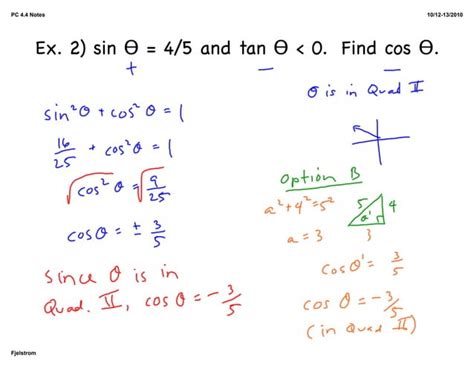 PC 4.4 Notes
10/12-13/2010
Ex. 2) sin θ = 4/5 and tan θ < 0. Find cos θ.
+ − −
θ is in Quad II
sin²θ + cos²θ = 1
16/25 + cos²θ = 1
√cos²θ = √9/25
cosθ = ± 3/5
since θ is in
Quad. II, cosθ = -3/5
Option B
a² + 4² = 5²
5 4
θ'
a = 3
3
cosθ' = 3/5
cosθ = -3/5
(in Quad II)
Fjelstrom